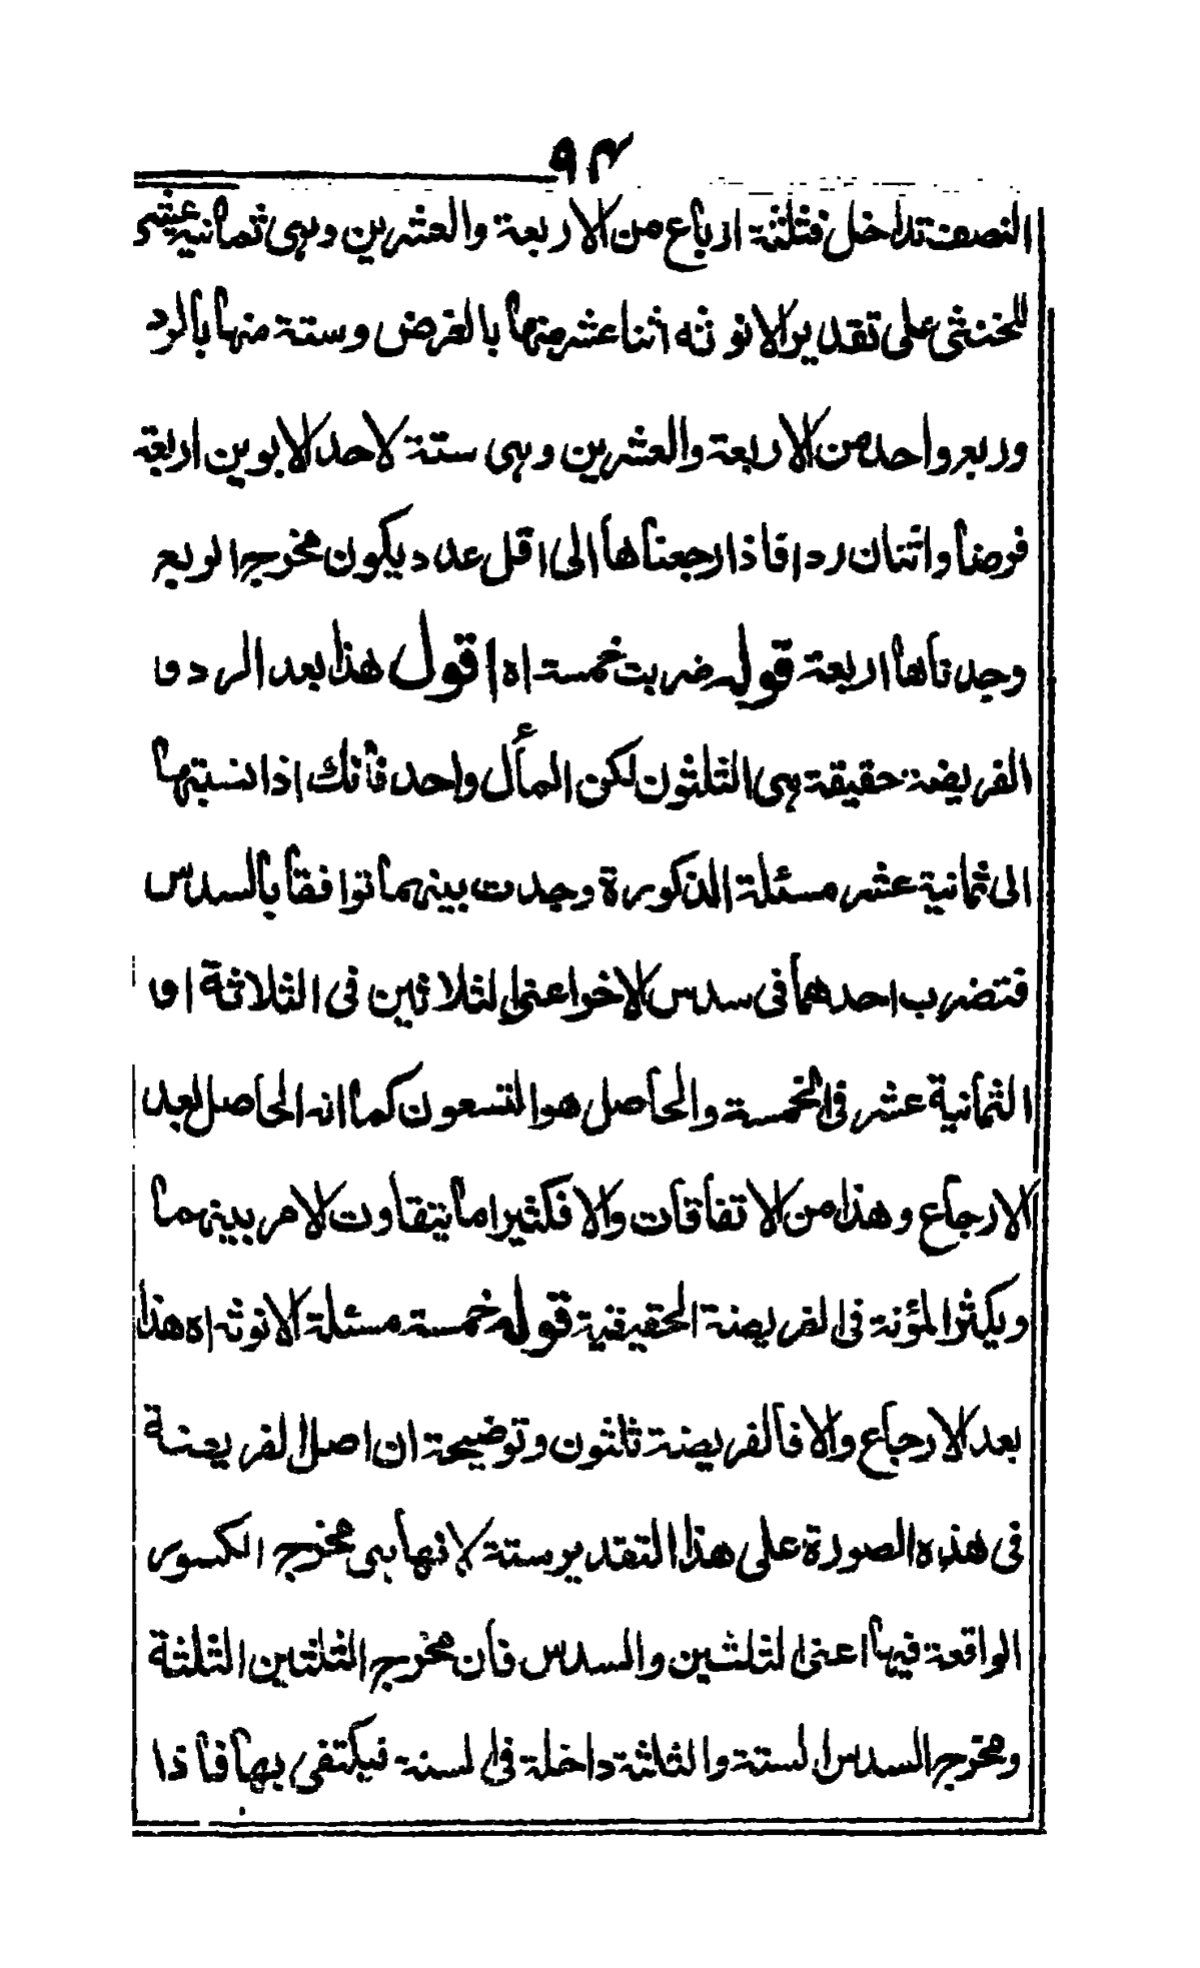 ٩٣
النصف تداخل فثلثة ارباع من الاربعة والعشرين وہی ثمانية عشر
للخنثى على تقدير الانوثه اثنا عشر منها بالفرض وستة منها بالرد
وربع واحد من الاربعة والعشرين وہی ستة لاحد الابوين اربعة
فرضا واثنان ردا فاذا رجعناها الى اقل عدد يكون مخرج الربع
وجدناها اربعة قوله ضربت خمسة اه اقول هذا بعد الرد و
الفريضة حقيقة ہی الثلثون لكن المأل واحد فانك اذا نسبتها
الى ثمانية عشر مسئلة الذكورة وجدت بينهما توافقا بالسدس
فتضرب احدهما فى سدس الاخر اعنى الثلاثين فى الثلاثة او
الثمانية عشر فى الخمسة والحاصل هو التسعون كما انه الحاصل بعد
الارجاع وهذا من الاتفاقات والا فكثيرا ما يتفاوت الامر بينهما
ويكثر المؤنة فى الفريضة الحقيقية قوله خمسة مسئلة الانوثه اه هذا
بعد الارجاع والا فالفريضة ثلثون وتوضيحة ان اصل الفريضة
فى هذه الصورة على هذا التقدير ستة لانها ہی مخرج الكسور
الواقعة فيها اعنى الثلثين والسدس فان مخرج الثلثين الثلثة
ومخرج السدس الستة والثلثة داخلة فى الستة فيكتفى بها فاذا